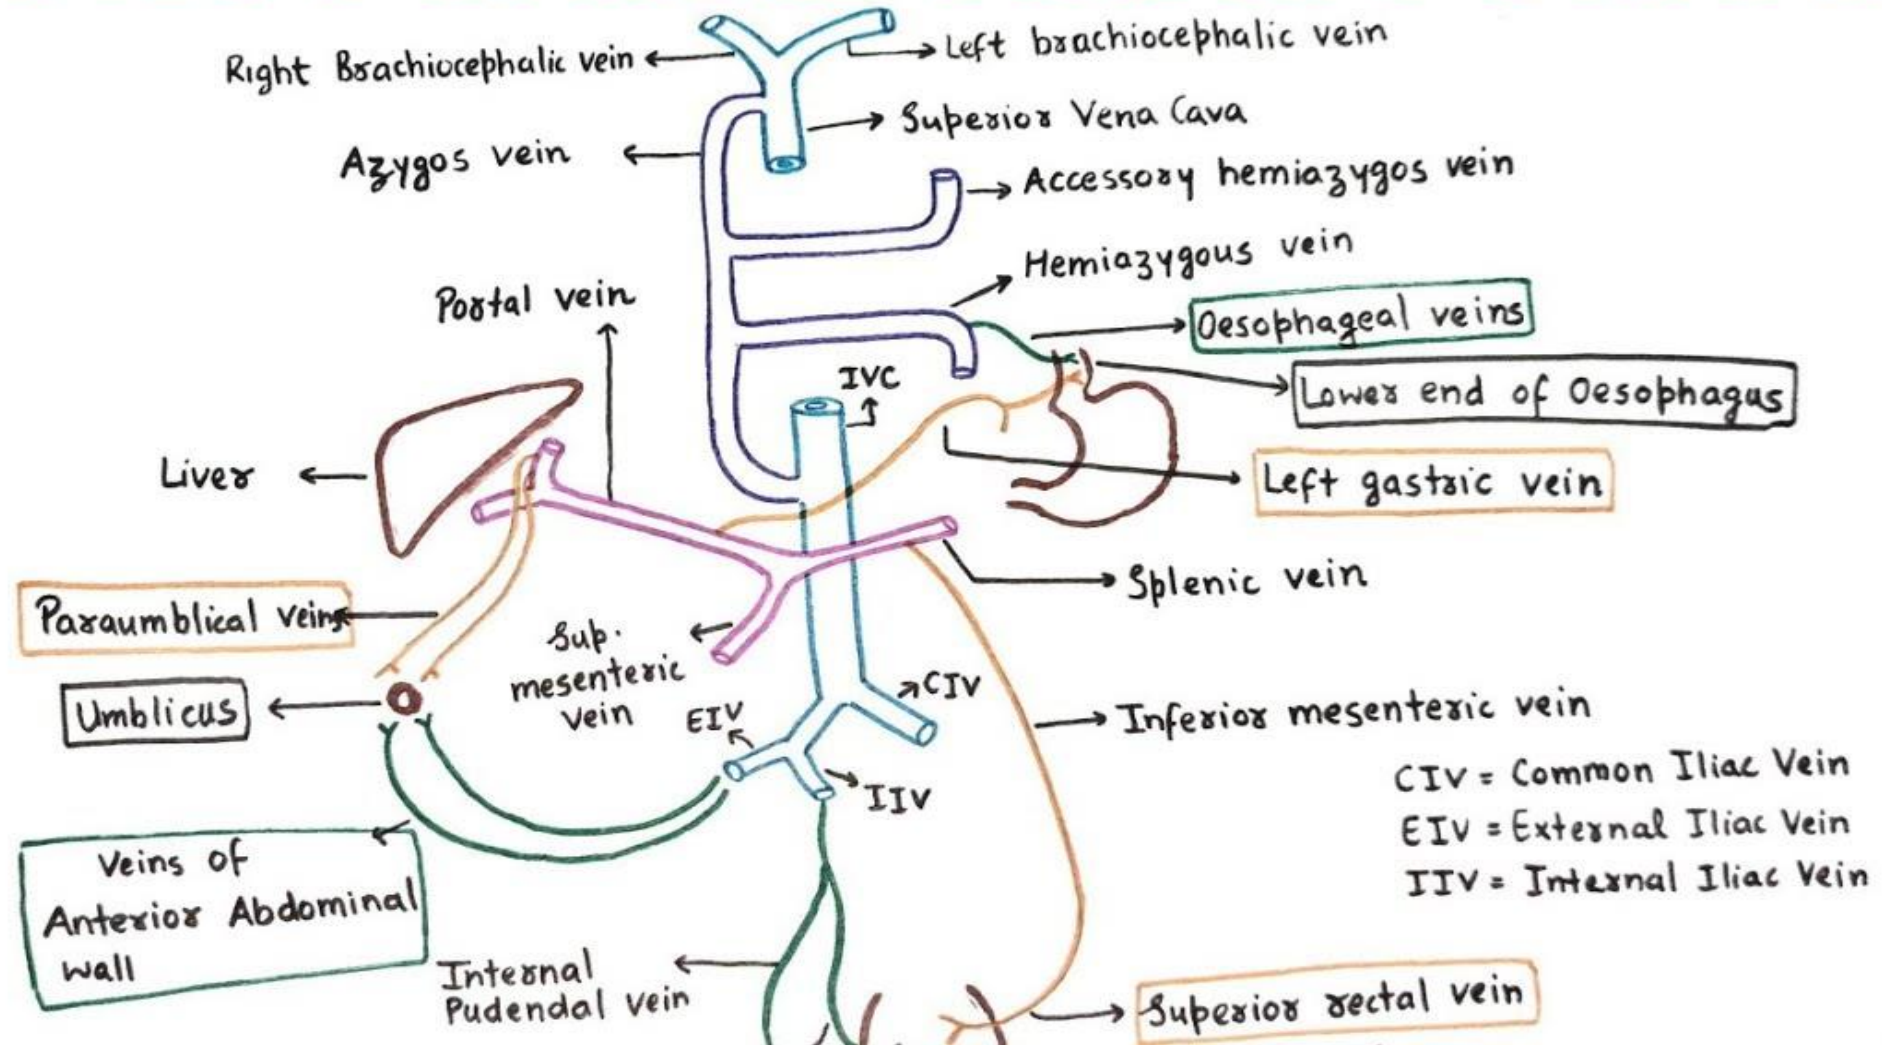 Right Brachiocephalic vein
Left brachiocephalic vein
Superior Vena Cava
Azygos vein
Accessory hemiazygos vein
Hemiazygous vein
Portal vein
Oesophageal veins
IVC
Lower end of Oesophagus
Liver
Left gastric vein
Splenic vein
Paraumblical veins
Sup.
mesenteric
vein
Umblicus
CIV
EIV
Inferior mesenteric vein
IIV
CIV = Common Iliac Vein
EIV = External Iliac Vein
IIV = Internal Iliac Vein
Veins of
Anterior Abdominal
wall
Internal
Pudendal vein
Superior rectal vein